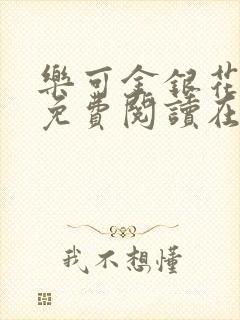 樂可金銀花
免費閱讀在
我不想懂